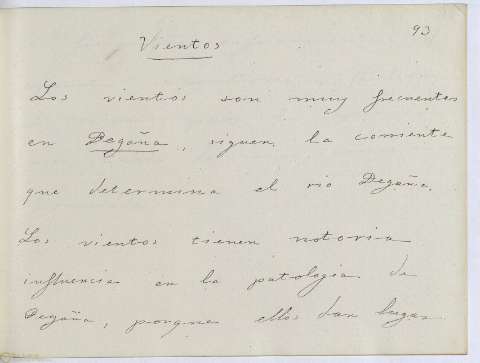 93
Vientos
Los vientos son muy frecuentes
en Degaña, siguen la corriente
que determina el rio Degaña.
Los vientos tienen notoria
influencia en la patologia de
Degaña, porque ellos dan lugar